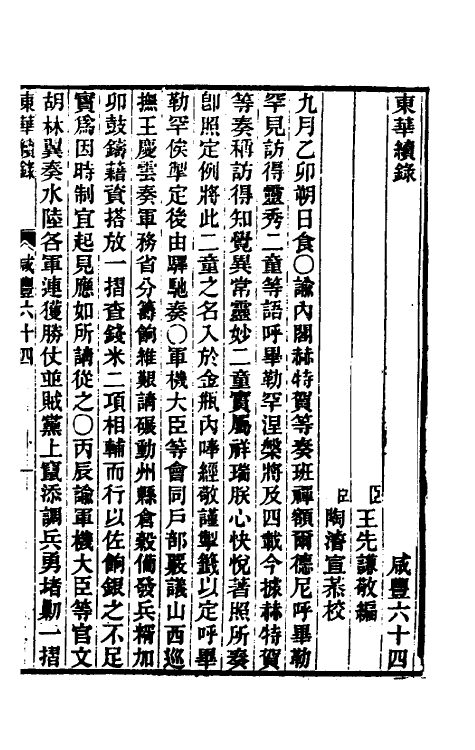 東華續錄　咸豐六十四
臣王先謙敬編
臣陶濬宣恭校
九月乙卯朔日食〇諭內閣赫特賀等奏班禪額爾德尼呼畢勒
罕見訪得靈秀二童等語呼畢勒罕涅槃將及四載今據赫特賀
等奏稱訪得知覺異常靈妙二童實屬祥瑞朕心快悅著照所奏
卽照定例將此二童之名入於金瓶內唪經敬謹掣籤以定呼畢
勒罕俟掣定後由驛馳奏〇軍機大臣等會同戶部嚴議山西巡
撫王慶雲奏軍務省分籌餉維艱請碾動州縣倉穀備發兵糈加
卯鼓鑄藉資搭放一摺查錢米二項相輔而行以佐餉銀之不足
實爲因時制宜起見應如所請從之〇丙辰諭軍機大臣等官文
胡林翼奏水陸各軍連獲勝仗並賊黨上竄添調兵勇堵勦一摺
東華續錄　咸豐六十四　一